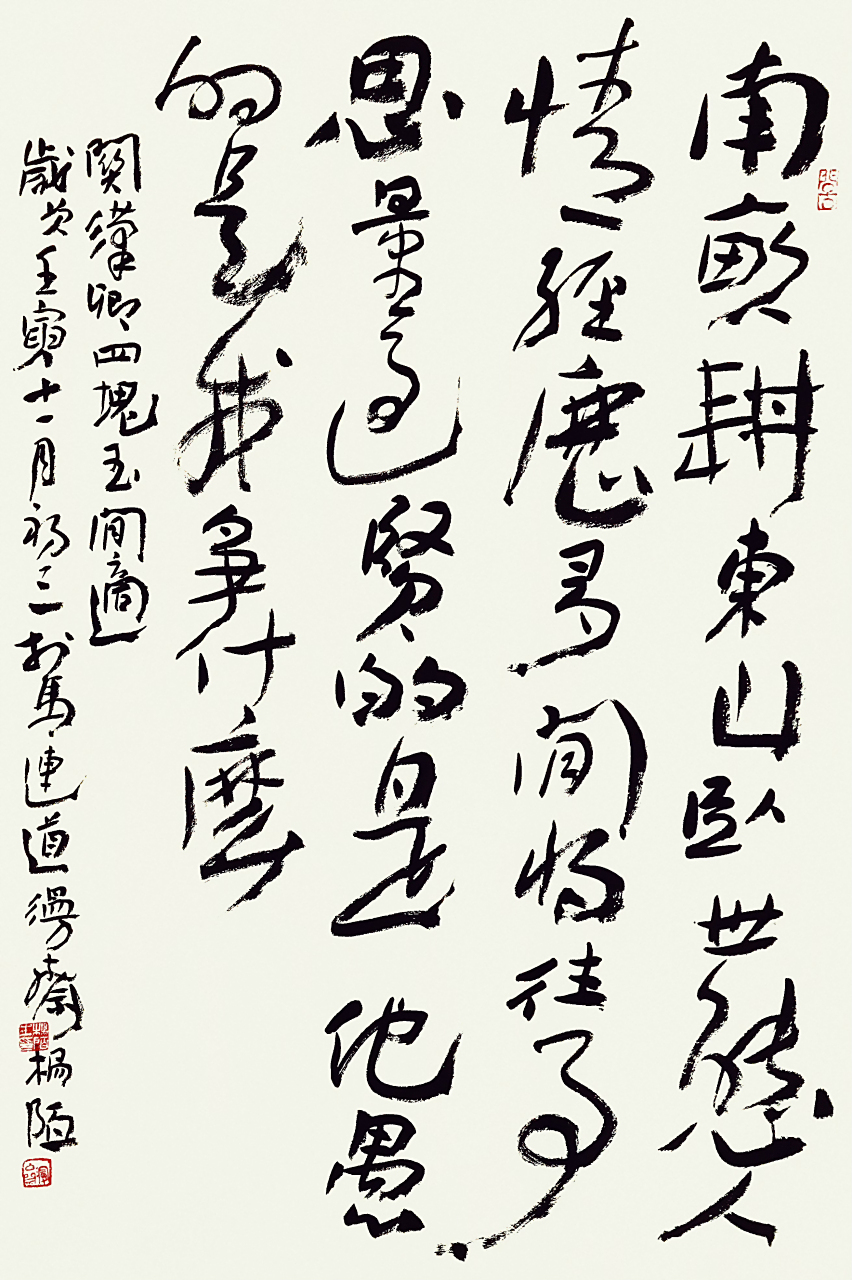 南畝耕東山臥世態人
情經歷多閒將往事
思量過賢的是他愚
的是我爭什麼
關漢卿四塊玉閒適
歲次壬寅十一月初三於馬連道齋楊陋